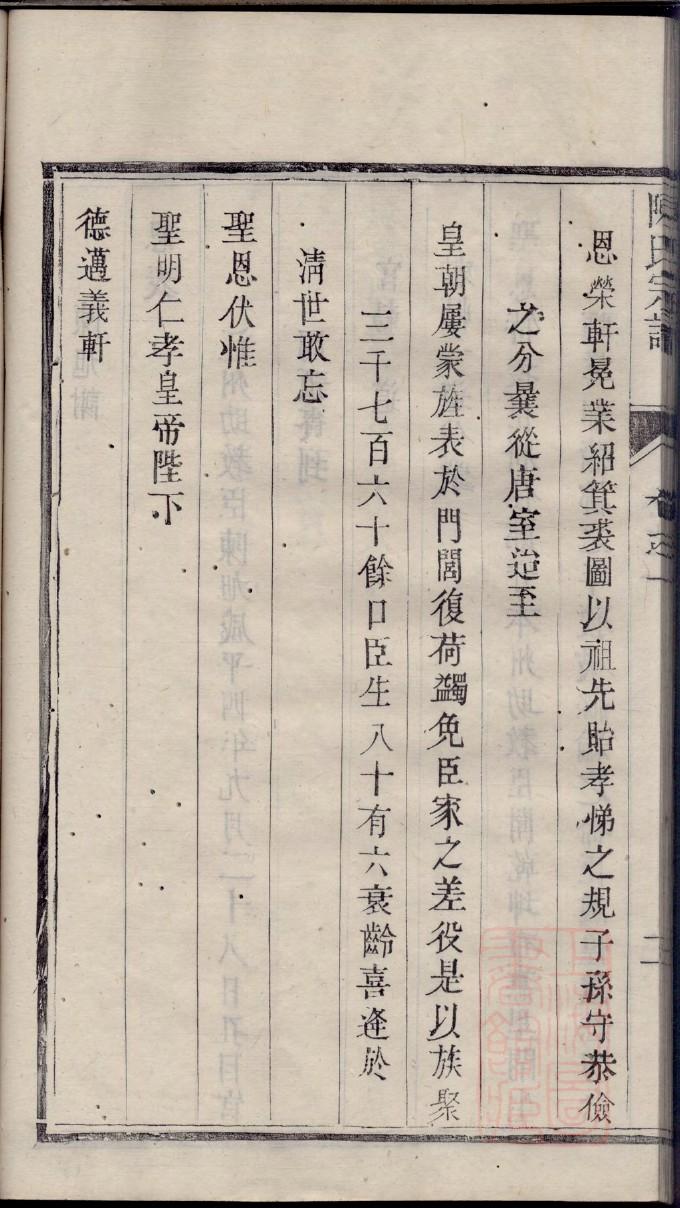 陳氏宗譜
卷之一
恩榮軒冕業紹箕裘圖以祖先貽孝悌之規子孫守恭儉
之分曩從唐室迨至
皇朝屢蒙旌表於門閭復荷蠲免臣家之差役是以族聚
三千七百六十餘口臣生八十有六衰齡喜逢於
淸世敢忘
聖恩伏惟
聖明仁孝皇帝陛下
德邁義軒